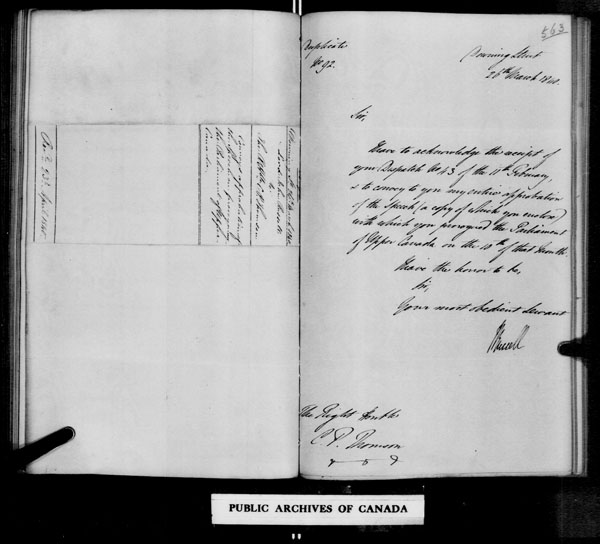 563
Duplicate
No 92.
Downing Street
26th March 1840.
Sir,
I have to acknowledge the receipt of
your Despatch No 43 of the 11th February,
& to convey to you my entire approbation
of the Speech (a copy of which you enclose)
with which you prorogued the Parliament
of Upper Canada on the 10th of that Month
I have the honor to be,
Sir,
Your most obedient Servant
JRussell
The Right Honble
C. P. Thomson
Downing St 26 March 1840
Lord John Russell
to
The Rt Hble C. P. Thomson
Conveys approbation of
the Speech on proroguing
the Parliament of Upper
Canada.
Rec'd 23d April 1840
PUBLIC ARCHIVES OF CANADA